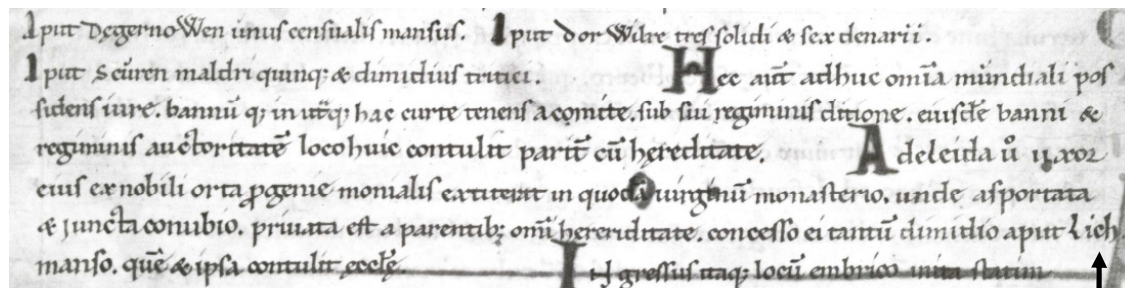 Aput Degernowen unus censualis mansus. Aput dorwilre tres solidi & sex denarii.
Aput Scuren maldri quinq; & dimidius tritici. Hec aut̄ adhuc om̄ia mundiali pos
sidens iure. bannū q; in utq; hac curte tenens a comite. sub sui regiminis ditione. eiusdē banni &
regiminis auctoritatē loco huic contulit parit̄ cū hereditate. Adeleida ū uxor
eius ex nobili orta ꝓgenie monialis extiterat in quodā uirginū monasterio. unde asportata
& juncta conubio. priuata est a parentib; om̄i hereriditate. concesso ei tantū dimidio aput Lich
manso. quē & ipsa contulit ecclę. INgressus itaq; locū embrico inita statim